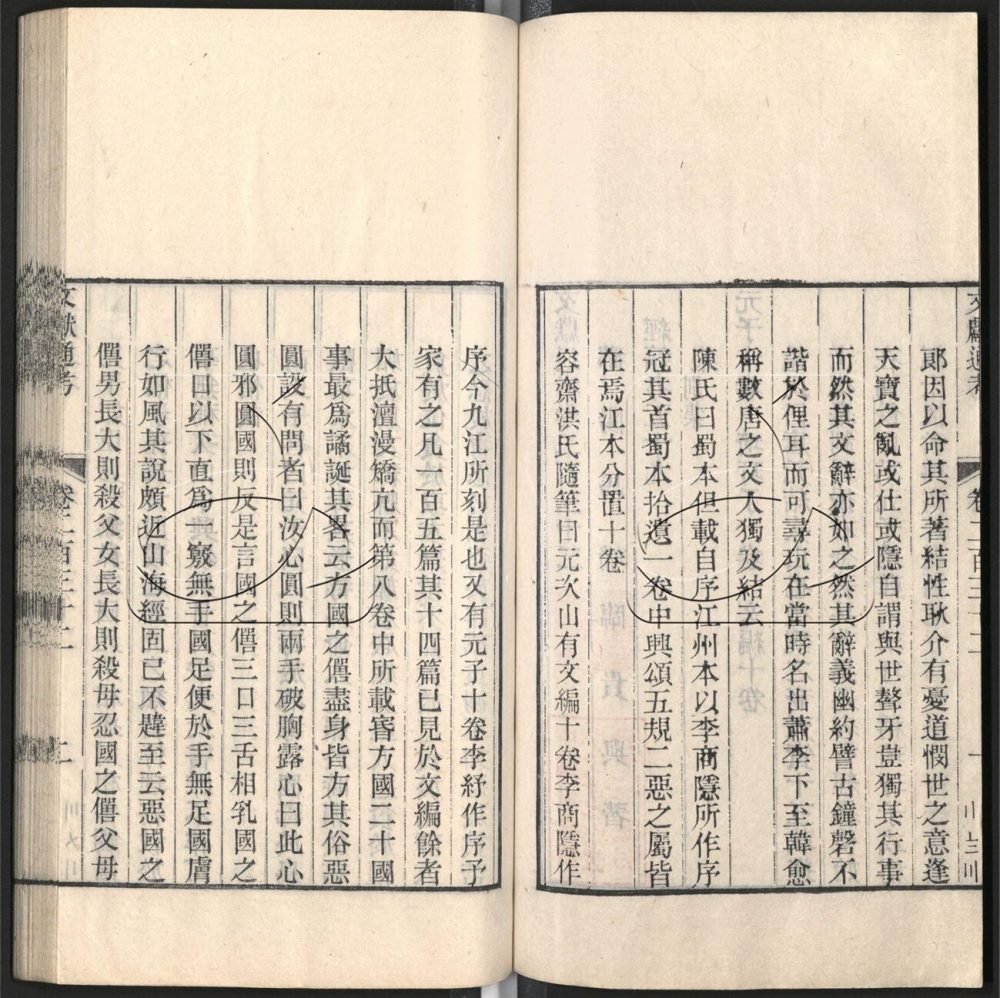 郎因以命其所著結性耿介有憂道憫世之意逢
天寶之亂或仕或隱自謂與世聱牙豈獨其行事
而然其文辭亦如之然其辭義幽約譬古鐘磬不
諧於俚耳而可尋玩在當時名出蕭李下至韓愈
稱數唐之文人獨及結云
陳氏曰蜀本但載自序江州本以李商隱所作序
冠其首蜀本拾遺一卷中興頌五規二惡之屬皆
在焉江本分置十卷
容齋洪氏隨筆曰元次山有文編十卷李商隱作
序今九江所刻是也又有元子十卷李紓作序予
家有之凡一百五篇其十四篇已見於文編餘者
大抵澶漫矯亢而第八卷中所載㫺方國二十國
事最爲譎誕其畧云方國之僭盡身皆方其俗惡
圓設有問者曰汝心圓則兩手破胸露心曰此心
圓邪圓國則反是言國之僭三口三舌相乳國之
僭口以下直爲一竅無手國足便於手無足國膚
行如風其說頗近山海經固已不韙至云惡國之
僭男長大則殺父女長大則殺母忍國之僭父母
文獻通考
卷二百三十二
二